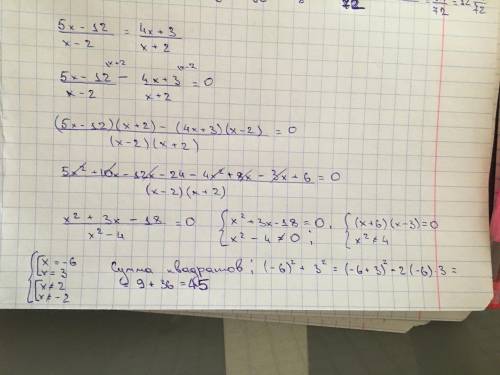 72
/72 = 12/72
(5x - 12)/(x - 2) = (4x + 3)/(x + 2)
(5x - 12)/(x - 2) \x+2 - (4x + 3)/(x + 2) \x-2 = 0
((5x - 12)(x + 2) - (4x + 3)(x - 2))/((x - 2)(x + 2)) = 0
(5x² + 10x - 12x - 24 - 4x² + 8x - 3x + 6)/((x - 2)(x + 2)) = 0
(x² + 3x - 18)/(x² - 4) = 0 { x² + 3x - 18 = 0, x² - 4 ≠ 0; { (x + 6)(x - 3) = 0 x² ≠ 4
{ [ x = -6 x = 3 [ x ≠ 2 x ≠ -2 Сумма квадратов: (-6)² + 3² = (-6 + 3)² - 2(-6)·3 =
= 9 + 36 = 45